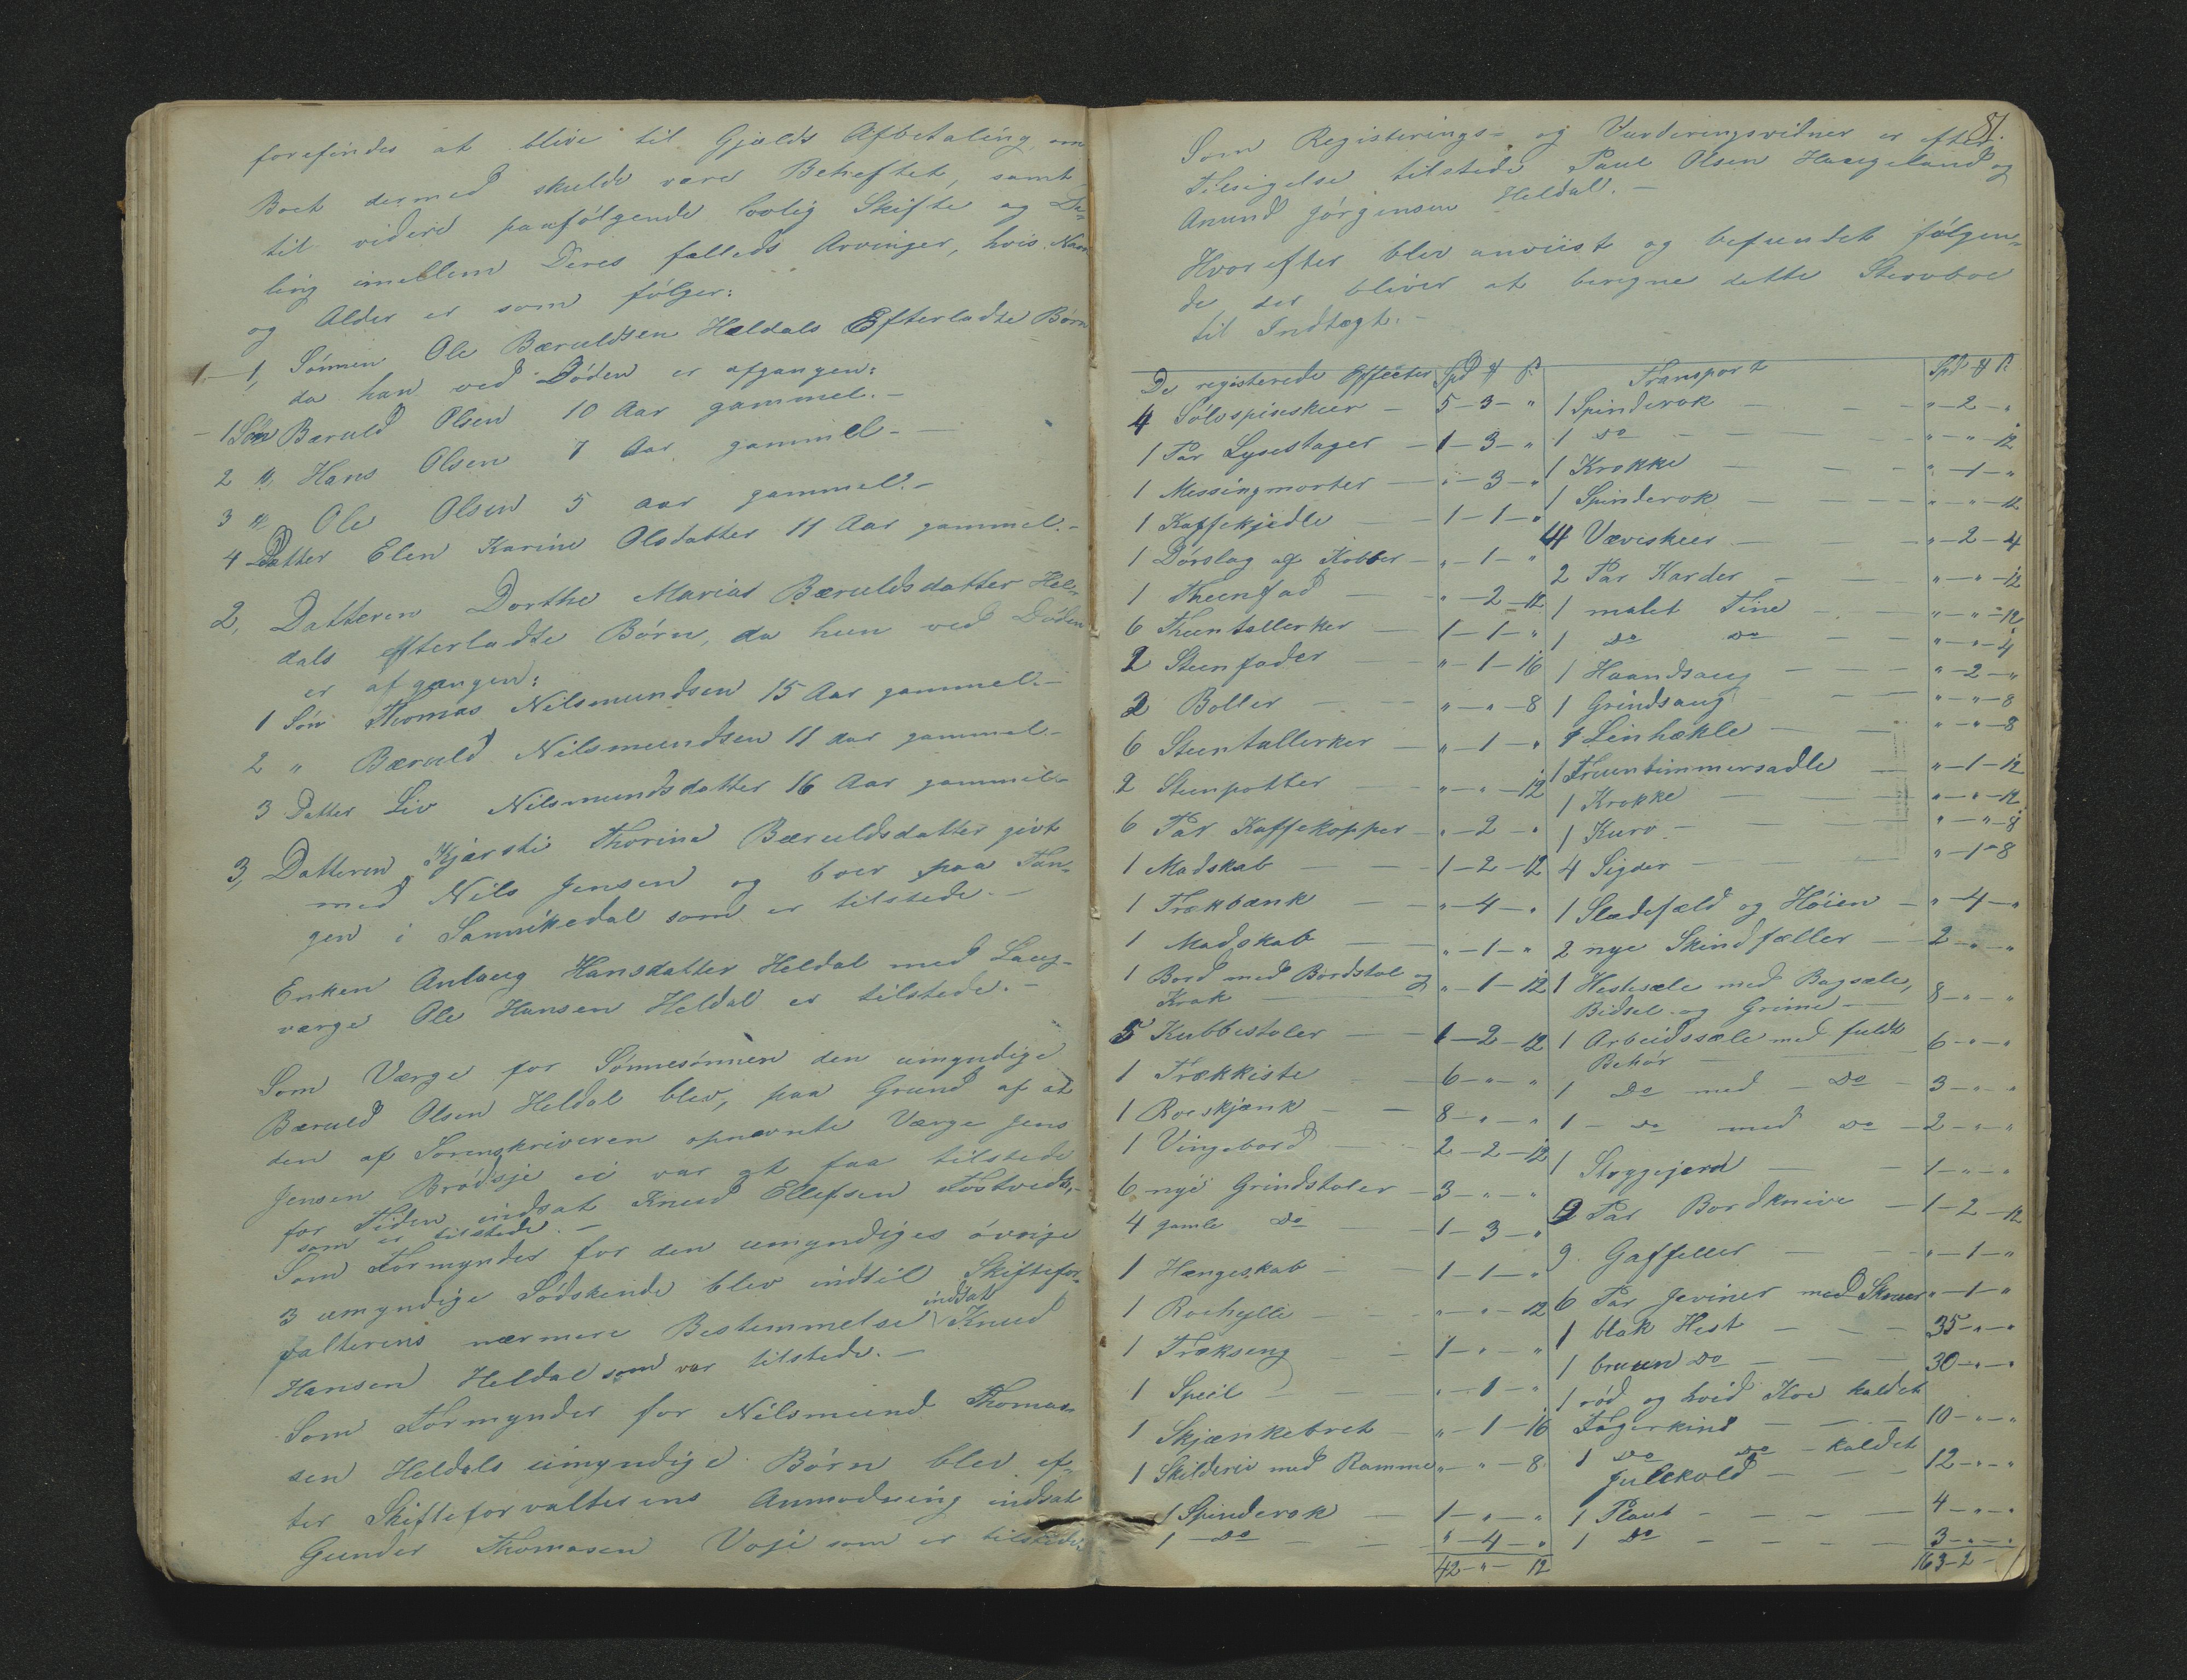 forefindes at blive til Gjælds Afbetaling, om
Boet dermed skulde være Beheftet, samt
til videre paafølgende lovlig Skifte og De-
ling imellem Deres fælleds Arvinger, hvis Navn
og Alder er som følger:
1, Sønnen Ole Bæruldsen Heldals Efterladte Børn
da han ved Døden er afgangen:
1 Søn Bæruld Olsen 10 Aar gammel. -
2 " Hans Olsen 7 Aar gammel -
3 " Ole Olsen 5 aar gammel. -
4 Datter Elen Karine Olsdatter 11 Aar gammel. -
2, Datteren Dorthe Marias Bæruldsdatter Hel-
dals efterladte Børn, da hun ved Døden
er afgangen:
1 Søn Thomas Nilsmundsen 15 Aar gammel -
2 " Bæruld Nilsmundsen 11 aar gammel -
3 Datter Liv Nilsmundsdatter 16 Aar gammel -
3, Datteren Kjærsti Thorine Bæruldsdatter givt
med Nils Jensen og boer paa Tan-
gen i Sannikedal som er tilstede. -
Enken Anlaug Hansdatter Heldal med Laug-
værge Ole Hansen Heldal er tilstede. -
Som Værge for Sønnesønnen den umyndige
Bæruld Olsen Heldal blev, paa Grund af at
den af Sorenskriveren opnævnte Værge Jens
Jensen Brødsje ei var at faa tilstede
for Tiden indsat Knud Ellefsen Tostvedt,
som er tilstede. -
Som Formynder for den umyndiges øvrige
3 umyndige Sødskende blev indtil Skiftefor-
valterens nærmere Bestemmelse indsat Knud
Hansen Heldal som var tilstede. -
Som Formynder for Nilsmund Thomas-
sen Heldals umyndige Børn blev ef-
ter Skifteforvalterens Anmodning indsat
Gunder Thomasen Voje som er tilstede.
81.
Som Registerings- og Vurderingsvidner er efter
Tilsigelse tilstede Paul Olsen Haugeland og
Anund Jørgensen Heldal. -
Hvorefter blev anviist og befundet følgen-
de der bliver at beregne dette Stervboe
til Indtægt. -
De registerede Effecter Spd # ß
4 Sølvspiseskeer - 5 - 3 - "
1 Par Lysestager - 1 - 3 - "
1 Messingmorter - " - 3 - "
1 Kaffekjedle - 1 - 1 - "
1 Dørslag af Kobber - " - 1 - "
1 Theenfad - " - 2 - 12
6 Theentallerker - 1 - 1 - "
2 Steenfader - " - 1 - 16
2 Boller - " - " - 8
6 Steentallerker - " - 1 - "
2 Steenpotter - " - " - 12
6 Par Kaffekopper - " - 2 - "
1 Madskab - 1 - 2 - 12
1 Trækbænk - " - 4 - "
1 Madskab - " - 1 - "
1 Bord med Bordstol og
Krak - " - 1 - 12
5 Kubbestoler - 1 - 2 - 12
1 Trækkiste - 6 - " - "
1 Roeskjænk - 8 - " - "
1 Vingebord - 2 - 2 - 12
6 nye Grindstoler - 3 - " - "
4 gamle Do - 1 - 3 - "
1 Hængeskab - 1 - 1 - "
1 Roehylle - " - " - 12
1 Trækseng - 1 - " - "
1 Speil - " - 1 - "
1 Skjænkebret - " - 1 - 16
1 Skilderie med Ramme " - " - 8
1 Spinderok - 1 - " - "
1 Do - " - 4 - "
42 - " - 12
Transport Spd # ß
1 Spinderok - " - 2 - "
1 Do - " - " - 12
1 Krokke - " - 1 - "
1 Spinderok - " - " - 12
4 Væveskeer - " - 2 - 4
2 Par Karder - " - " - 12
1 malet Tine - " - " - 12
1 Do Do - " - " - 4
1 Haandsaug - " - 2 - "
1 Grindsaug - " - " - 8
1 Linhekle - " - " - 8
1 Fruentimmersadle - " - 1 - 12
1 Krokke - " - " - 12
1 Kurv - " - " - 8
4 Sigder - " - 1 - 8
1 Slædefæld og Høien - " - 4 - "
2 nye Skindfæller - 2 - " - "
1 Hestesæle med Bagsæle,
Bidsel og Grime - 8 - " - "
1 Arbeidssæle med fuldt
Behør - 6 - " - "
1 Do med - Do - 3 - " - "
1 - Do med Do - 2 - " - "
1 Slaggejern - 1 - " - "
9 Par Bordknive - 1 - 2 - 12
9 Gaffeller - " - 1 - "
6 Par Jeviner med Skruer " - 1 - "
1 blak Hest - 35 - " - "
1 bruun Do - 30 - " - "
1 rød og hvid Koe kaldet
Fagerkind - 10 - " - "
1 Do Do - kaldet
Julekold - 12 - " - "
1 Plaut - 4 - " - "
1 Do - 3 - " - "
163 - 2 -